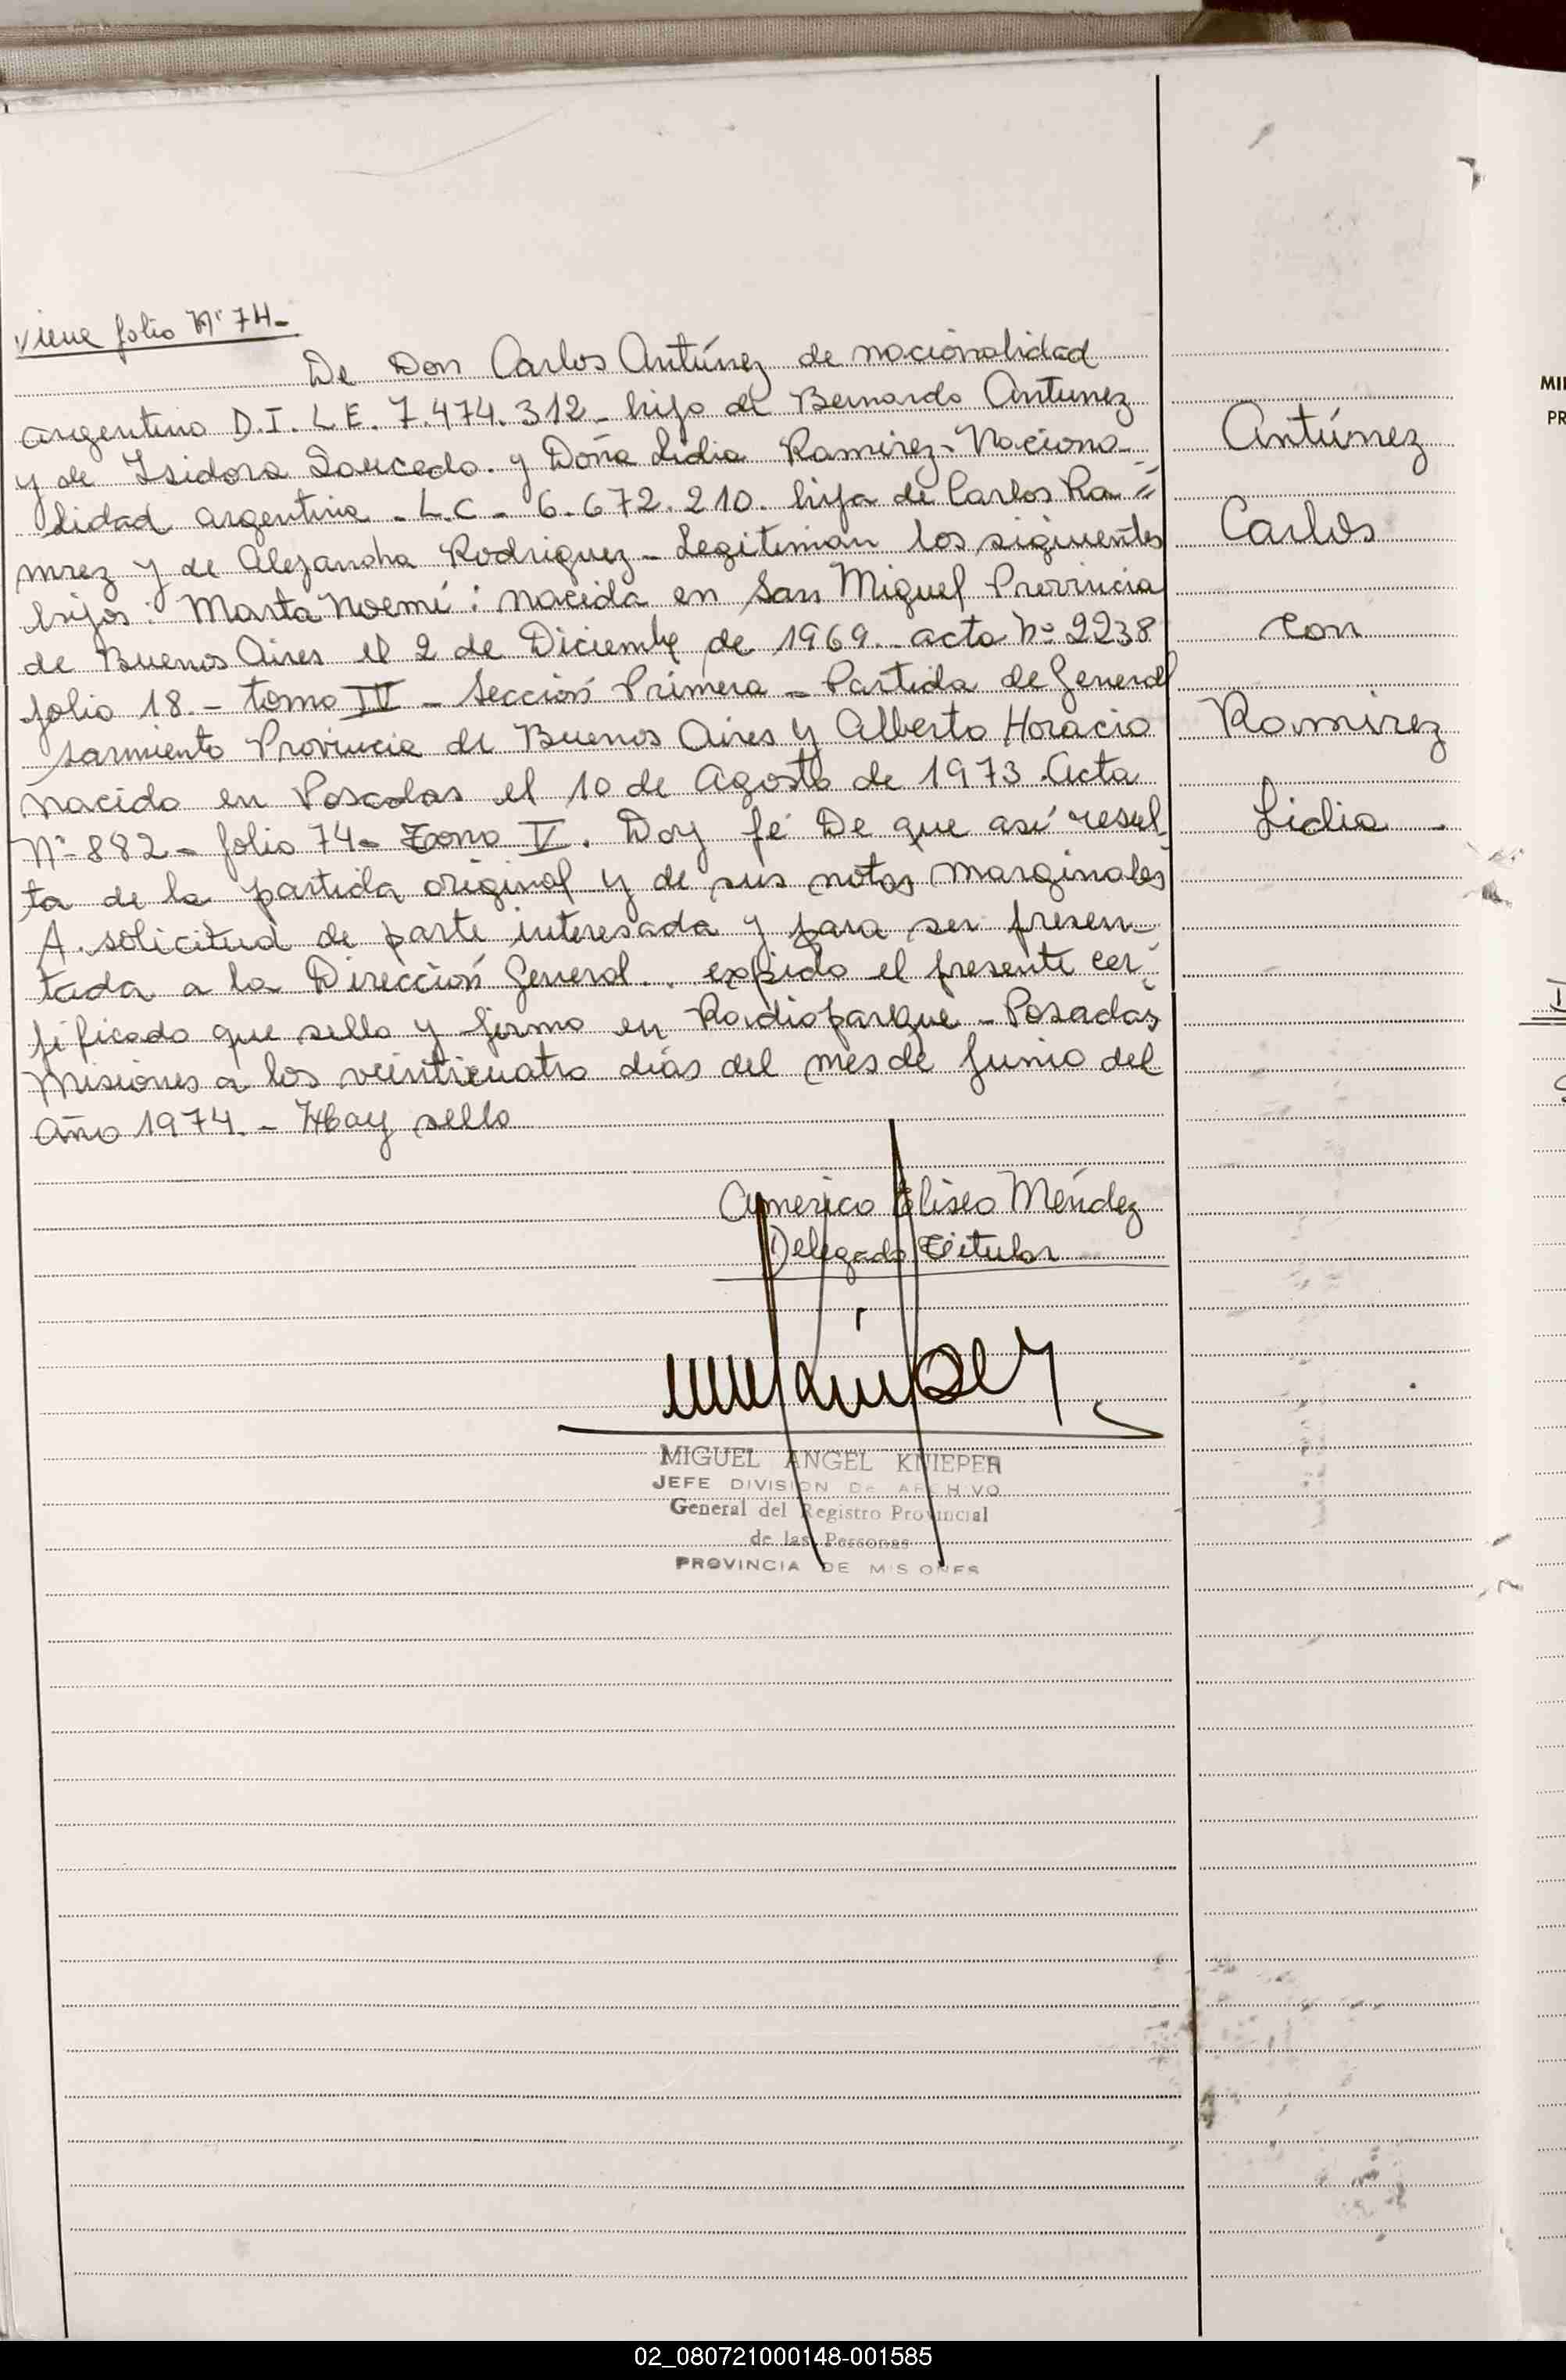 viene folio Nº 74-
De Don Carlos Antúnez de nacionalidad
argentino D.I. L.E. 7.474.312- hijo de Bernardo Antunez
y de Isidora Saucedo. y Doña Lidia Ramirez- Naciona-
lidad argentina - L.C - 6.672.210. hija de Carlos Ra=
mrez y de Alejandra Rodriguez - Legitiman los siguientes
hijos: Marta Noemí: nacida en San Miguel Provincia
de Buenos Aires el 2 de Diciembre de 1969.. acta Nº 2238
folio 18.- tomo IV - Sección Primera - Partida de General
Sarmiento Provincia de Buenos Aires y Alberto Horacio
nacido en Posadas el 10 de Agosto de 1973. Acta
Nº 882 - folio 74- Tomo V. Doy fé De que así resul
ta de la partida original y de sus notas marginales
A. solicitud de parte interesada y para ser presen-
tada a la Dirección General.. expido el presente cer-
tificado que sello y firmo en Radioparque - Posadas
Misiones a los veinticuatro días del mes de Junio del
Año 1974. - Hay sello
Americo Eliseo Méndez
Delegado Titular
MIGUEL ANGEL KNIEPER
JEFE DIVISION De ARCHIVO
General del Registro Provincial
de las Personas
PROVINCIA DE MISIONES
Antúnez
Carlos
con
Ramirez
Lidia -
MI
PR
02_080721000148-001585